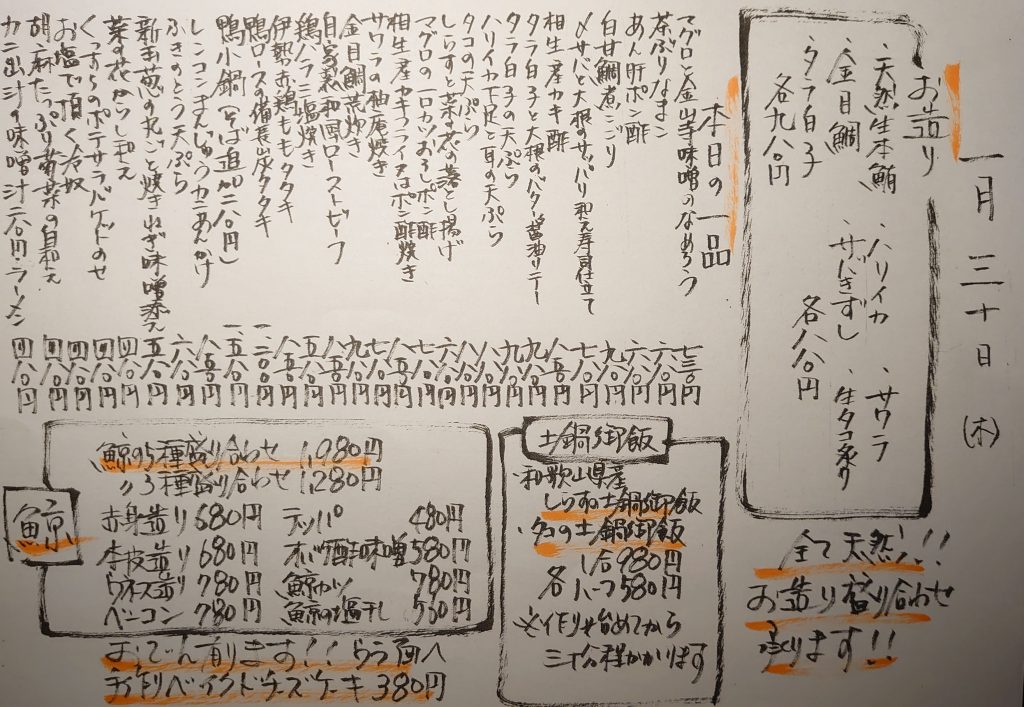 一月三十日(木)
お造り
、天然生本鮪
、金目鯛
、タラ白子
各九八〇円
、ハリイカ
、サワラ
、サバきずし
、生タコ炙り
各八八〇円
全て天然!!
お造り盛り合わせ
承ります!!
本日の一品
マグロと金山寺味噌のなめろう 七三〇円
茶ぶりなまこ 六八〇円
あん肝ポン酢 六八〇円
白甘鯛煮こごり
〆サバと大根のサッパリ和え寿司仕立て
相生産カキ酢
タラ白子と大根のバター醤油ソテー
タラ白子の天ぷら
ハリイカ下足と耳の天ぷら
タコの天ぷら
しらすと菜の花の落とし揚げ
マグロの一口カツおろしポン酢
相生産カキフライ又はポン酢焼き
サワラの柚庵焼き
金目鯛荒炊き
自家製和風ローストビーフ
鶏ハラミ塩焼き
伊勢赤鶏ももタタキ
鴨ロースの備長炭タタキ
鴨小鍋(そば追加二八〇円)
レンコンまんじゅうカニあんかけ
ふきのとう天ぷら
新玉葱の丸ごと焼きねぎ味噌添え
菜の花からし和え 四八〇円
くつろぎのポテサラバゲットのせ 四八〇円
お塩で頂く冷奴 四八〇円
胡麻たっぷり菊菜の白和え 四八〇円
カニ出汁の味噌汁二八〇円・ラーメン 四八〇円
土鍋御飯
、和歌山県産
しらすの土鍋御飯
、タコの土鍋御飯
1合980円
各ハーフ580円
※作り始めてから
三十分程かかります
鯨
鯨の5種盛り合わせ 1,980円
〃3種盛り合わせ 1,280円
赤身造り 680円 テッパ 480円
本皮造り 680円 オバケ酢味噌 580円
ウネス造り 780円 鯨カツ 780円
ベーコン 780円 鯨の塩干し 580円
おでん有ります!!
手作りベイクドチーズケーキ 380円